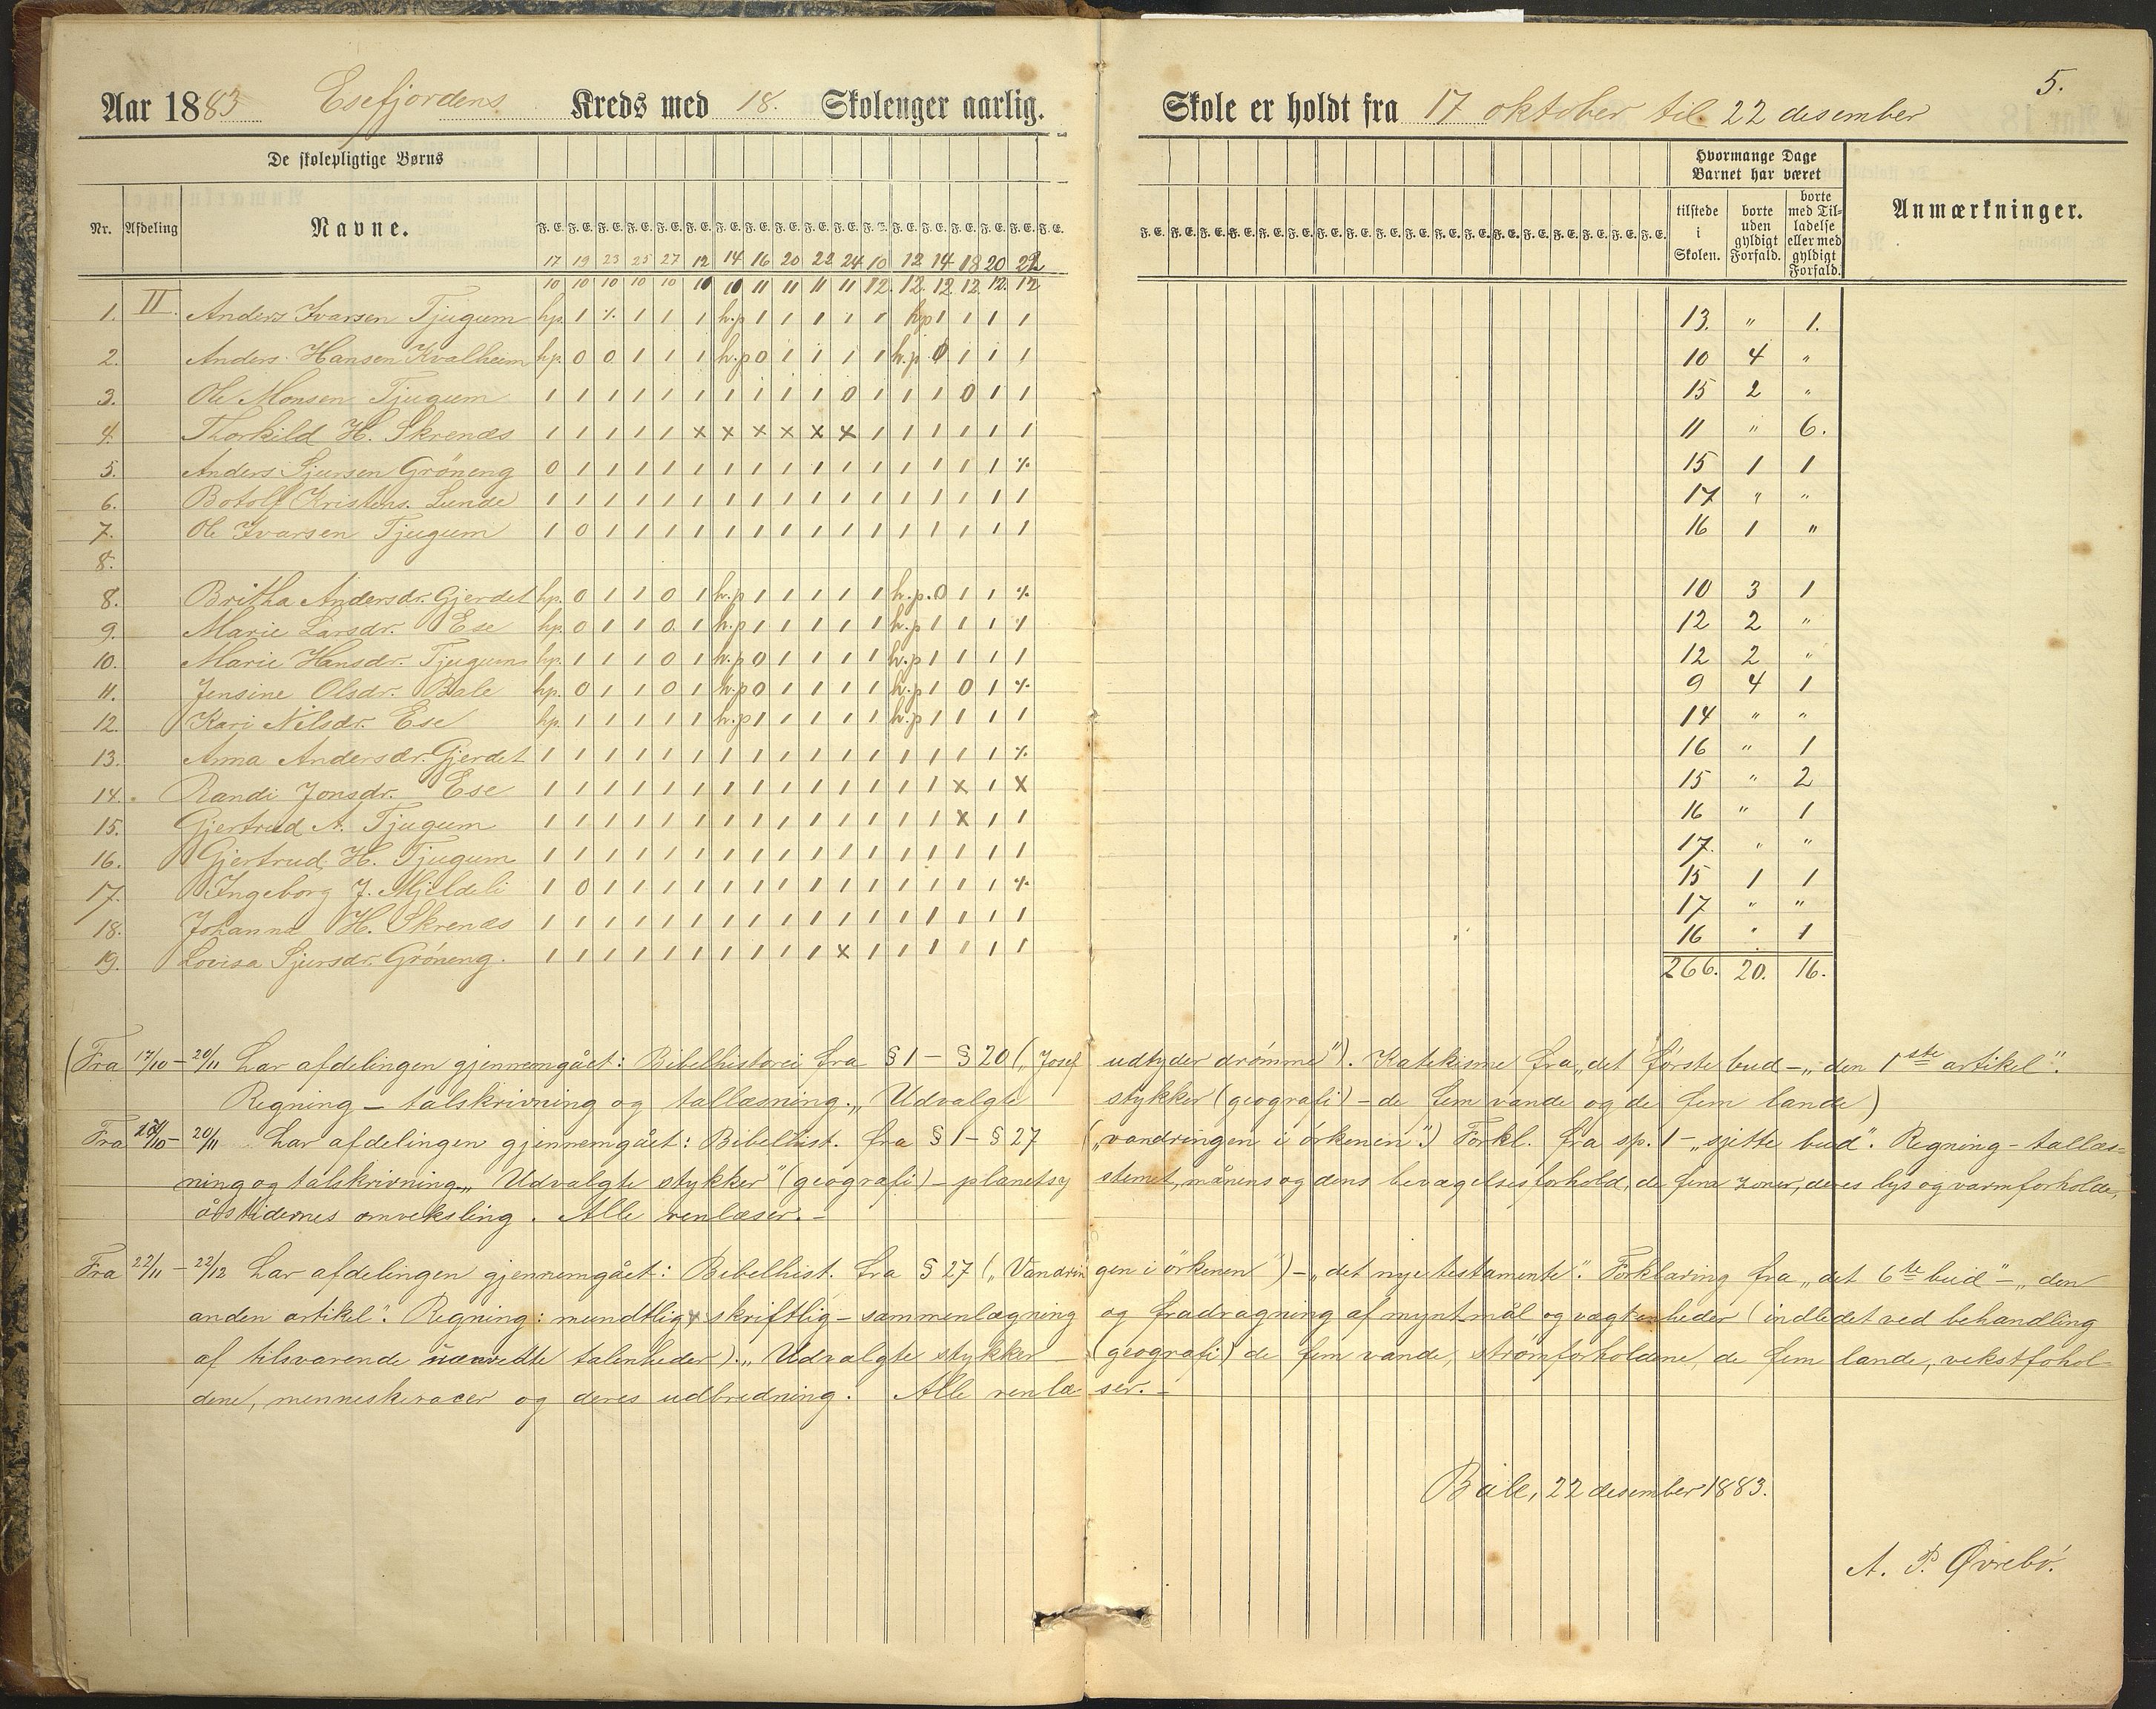 5.
Aar 1883 Esefjordens Kreds med 18. Skoleuger aarlig. Skole er holdt fra 17 oktober til 22 desember
De skolepligtige Børns
Hvormange Dage Barnet har været
Nr. Afdeling Navne. F. E. F. E. F. E. F. E. F. E. F. E. F. E. F. E. F. E. F. E. F. E. F. E. F. E. F. E. F. E. F. E. F. E. F. E. tilstede i Skolen. borte uden gyldigt Forfald. borte med Tilladelse eller med gyldigt Forfald. Anmærkninger.
17 19 23 25 27 12 14 16 20 22 24 10 12 14 18 20 22
10 10 10 10 10 10 10 11 11 11 11 12. 12. 12. 12. 12. 12
1. II. Anders Ivarsen Tjugum hp. 1 % 1 1 1 h.p 1 1 1 1 1 hp 1 1 1 1 13. " 1.
2. Anders Hansen Kvalheim hp. 0 0 1 1 1 h.p 0 1 1 1 1 h.p. 0 1 1 1 10 4 "
3. Ole Monsen Tjugum 1 1 1 1 1 1 1 1 1 1 0 1 1 1 0 1 1 15 2 "
4. Thorkild H. Skrenæs 1 1 1 1 1 x x x x x x 1 1 1 1 1 1 11 " 6.
5. Anders Sjursen Gröneng 0 1 1 1 1 1 1 1 1 1 1 1 1 1 1 1 % 15 1 1
6. Botolf Kristens. Lunde 1 1 1 1 1 1 1 1 1 1 1 1 1 1 1 1 1 17 " "
7. Ole Ivarsen Tjugum 1 0 1 1 1 1 1 1 1 1 1 1 1 1 1 1 1 16 1 "
8.
8. Britha Andersdr. Gjerdet hp. 0 1 1 0 1 h.p 1 1 1 1 1 h.p. 0 1 1 % 10 3 1
9. Marie Larsdr. Ese hp. 0 1 1 0. 1 h.p 1 1 1 1 1 h.p 1 1 1 1 12 2 "
10. Marie Hansdr. Tjugum hp. 1 1 1 0 1 h.p 0 1 1 1 1 h.p 1 1 1 1 12 2 "
11. Jensine Olsdr. Bale hp. 0 1 1 0 1 h.p 0 1 1 1 1 h.p 1 0 1 % 9 4 1
12. Kari Nilsdr. Ese hp. 1 1 1 1 1 h.p 1 1 1 1 1 h.p 1 1 1 1 14 " "
13. Anna Andersdr. Gjerdet 1 1 1 1 1 1 1 1 1 1 1 1 1 1 1 1 % 16 " 1
14. Randi Jonsdr. Ese 1 1 1 1 1 1 1 1 1 1 1 1 1 1 x 1 x 15 " 2
15. Gjertrud A. Tjugum 1 1 1 1 1 1 1 1 1 1 1 1 1 1 x 1 1 16 " 1
16. Gjertrud H. Tjugum 1 1 1 1 1 1 1 1 1 1 1 1 1 1 1 1 1 17. " "
17. Ingeborg J. Mjeldeli 1 0 1 1 1 1 1 1 1 1 1 1 1 1 1 1 % 15 1 1
18. Johanna H. Skrenæs 1 1 1 1 1 1 1 1 1 1 1 1 1 1 1 1 1 17 " "
19. Lovisa Sjursdr. Gröneng. 1 1 1 1 1 1 1 1 1 1 x 1 1 1 1 1 1 16 " 1
266. 20. 16.
(Fra 17/10 – 20/11 har afdelingen gjennemgået: Bibelhistorei fra § 1 – § 20 („Josef udtyder drømme"). Katekisme fra „det første bud – „den 1ste artikel".
Regning – talskrivning og tallæsning. „Udvalgte stykker (geografi) – de fem vande og de fem lande)
Fra 17/10 – 20/11 har afdelingen gjennemgået: Bibelhist. fra § 1 – § 27 („vandringen i örkenen".) Forkl. fra sp. 1 – „sjette bud". Regning – tallæs-
ning og talskrivning. „Udvalgte stykker" (geografi) – planetsystemet, månens og dens bevægelsesforhold, de fem zoner, deres lys og varmforholde,
årstidernes omveksling. Alle renlæser. –
Fra 22/11 – 22/12 har afdelingen gjennemgået: Bibelhist. fra § 27 („Vandringen i örkenen") – „det nye testamente". Forklaring fra „det 6te bud" – „den
anden artikel". Regning: mundtlig & skriftlig – sammenlægning og fradragning af mynt mål og vægtenheder (indledet ved behandling
af tilsvarende talenheder). „Udvalgte stykker – (geografi) de fem vande, strømforholdene, de fem lande, vekstfohol-
dene, menneskeracer og deres udbredning. Alle renlæser. –
Bale, 22 desember 1883.
A. P. Øvrebö.